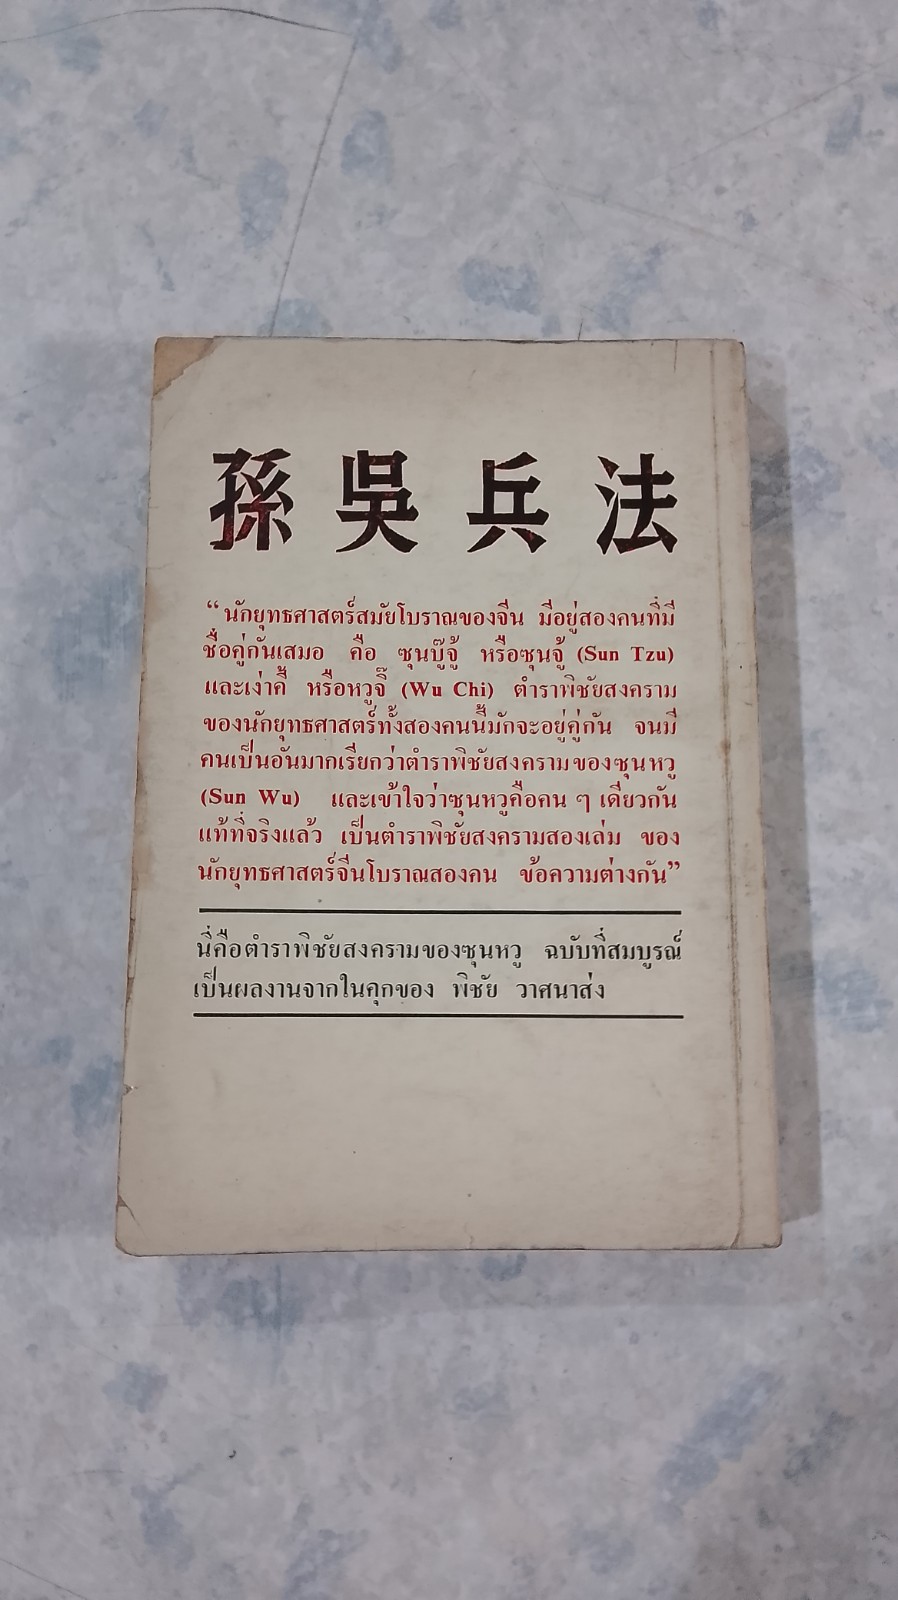 孫吳兵法
“นักยุทธศาสตร์สมัยโบราณของจีน มีอยู่สองคนที่มี
ชื่อคู่กันเสมอ คือ ซุนบู๊จู้ หรือซุนจู้ (Sun Tzu)
และเง่าคี้ หรือหวูจี๊ (Wu Chi) ตำราพิชัยสงคราม
ของนักยุทธศาสตร์ทั้งสองคนนี้มักจะอยู่คู่กัน จนมี
คนเป็นอันมากเรียกว่าตำราพิชัยสงครามของซุนหวู
(Sun Wu) และเข้าใจว่าซุนหวูคือคน ๆ เดียวกัน
แท้ที่จริงแล้ว เป็นตำราพิชัยสงครามสองเล่ม ของ
นักยุทธศาสตร์จีนโบราณสองคน ข้อความต่างกัน”
นี่คือตำราพิชัยสงครามของซุนหวู ฉบับที่สมบูรณ์
เป็นผลงานจากในคุกของ พิชัย วาศนาส่ง